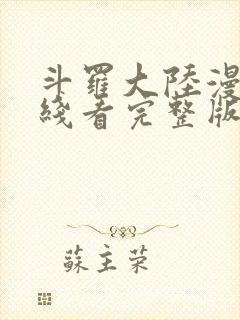 斗羅大陸漫
綫看完整版
蘇主荣